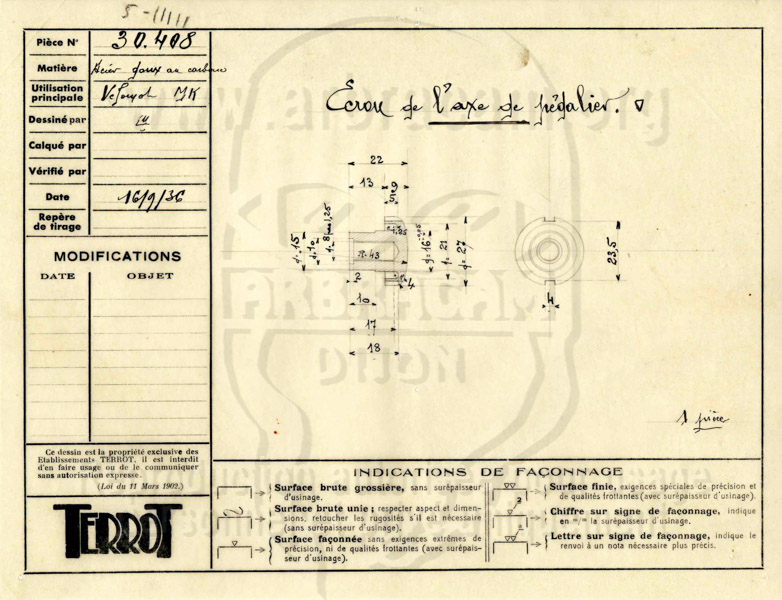 5-11111
Pièce N° 30.408
Matière Acier doux au carbone
Utilisation principale Vélouxot MK
Dessiné par
Calqué par
Vérifié par
Date 16/9/36
Repère de tirage
MODIFICATIONS
DATE OBJET
Ce dessin est la propriété exclusive des
Etablissements TERROT, il est interdit
d'en faire usage ou de le communiquer
sans autorisation expresse.
(Loi du 11 Mars 1902.)
TERROT
Ecrou de l'axe de pédalier. ▽
22
13
5
9
d=15
d=10
d=8 pas 1,25
R.43
d=16
d=21
d=27
2
4
10
17
18
23,5
4
1 pièce
www.arbracam.org
ARBRACAM
DIJON
INDICATIONS DE FAÇONNAGE
Surface brute grossière, sans surépaisseur
d'usinage.
Surface brute unie ; respecter aspect et dimen-
sions, retoucher les rugosités s'il est nécessaire
(sans surépaisseur d'usinage).
Surface façonnée sans exigences extrêmes de
précision, ni de qualités frottantes (avec surépais-
seur d'usinage).
Surface finie, exigences spéciales de précision et
de qualités frottantes (avec surépaisseur d'usinage).
2
Chiffre sur signe de façonnage, indique
en m/m la surépaisseur d'usinage.
a
Lettre sur signe de façonnage, indique le
renvoi à un nota nécessaire plus précis.